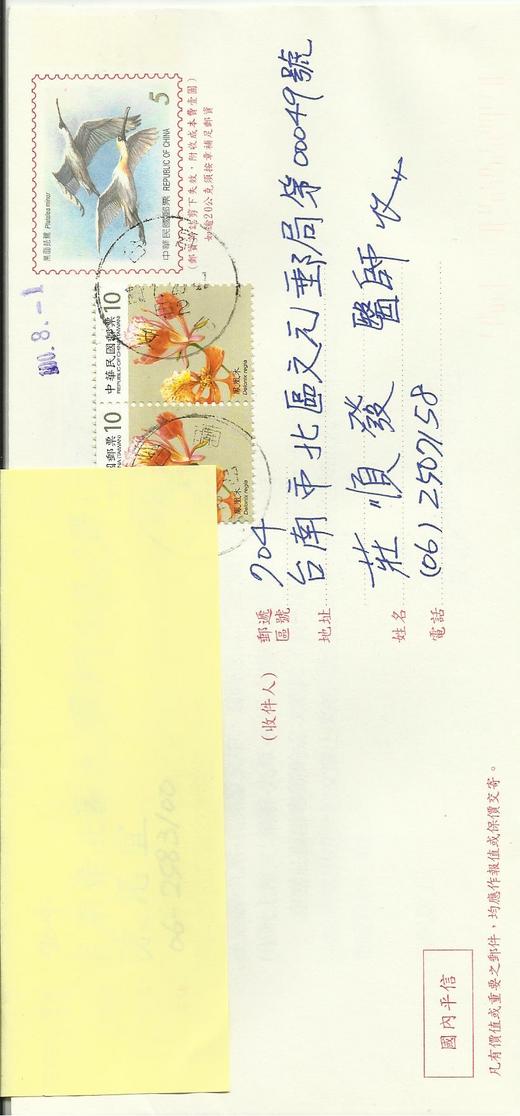 黑面琵鷺 Platalea minor
5
中華民國郵票 REPUBLIC OF CHINA
(郵資符誌剪下失效，附收成本費壹圓)
如逾20公克須按章補足郵資
100.8.-1
中華民國郵票 10
REPUBLIC OF CHINA (TAIWAN)
鳳凰木
Delonix regia
國郵票 10
INA (TAIWAN)
鳳凰木
Delonix regia
(收件人)
郵遞區號 704
地址 台南市北區文元郵局第00049號
姓名 莊順發 醫師 收
電話 (06) 2502158
06-2983100
國內平信
凡有價值或重要之郵件，均應作報值或保價交寄。